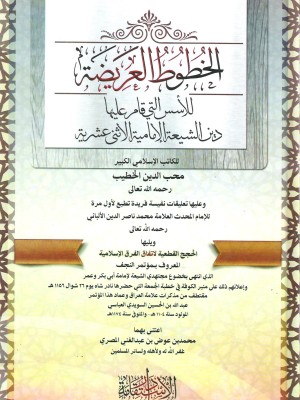 الخطوط العريضة
للأسس التي قام عليها
دين الشيعة الإمامية الاثني عشرية
للكاتب الإسلامي الكبير
محب الدين الخطيب
رحمه الله تعالى
وعليها تعليقات نفيسة فريدة تطبع لأول مرة
للإمام المحدث العلامة محمد ناصر الدين الألباني
رحمه الله تعالى
ويليها
الحجج القطعية لاتفاق الفرق الإسلامية
المعروف بمؤتمر النجف
الذي انتهى بخضوع مجتهدي الشيعة لإمامة أبي بكر وعمر
وإعلانهم ذلك على منبر الكوفة في خطبة الجمعة التي حضرها نادر شاه يوم ٢٦ شوال ١١٥٦ هـ
مقتطف من مذكرات علامة العراق وعماد هذا المؤتمر
عبد الله بن الحسين السويدي العباسي
المولود سنة ١١٠٤ هـ - والمتوفى سنة ١١٧٤ هـ
اعتنى بهما
محمد بن عوض بن عبد الغني المصري
غفر الله له ولأهله ولسائر المسلمين